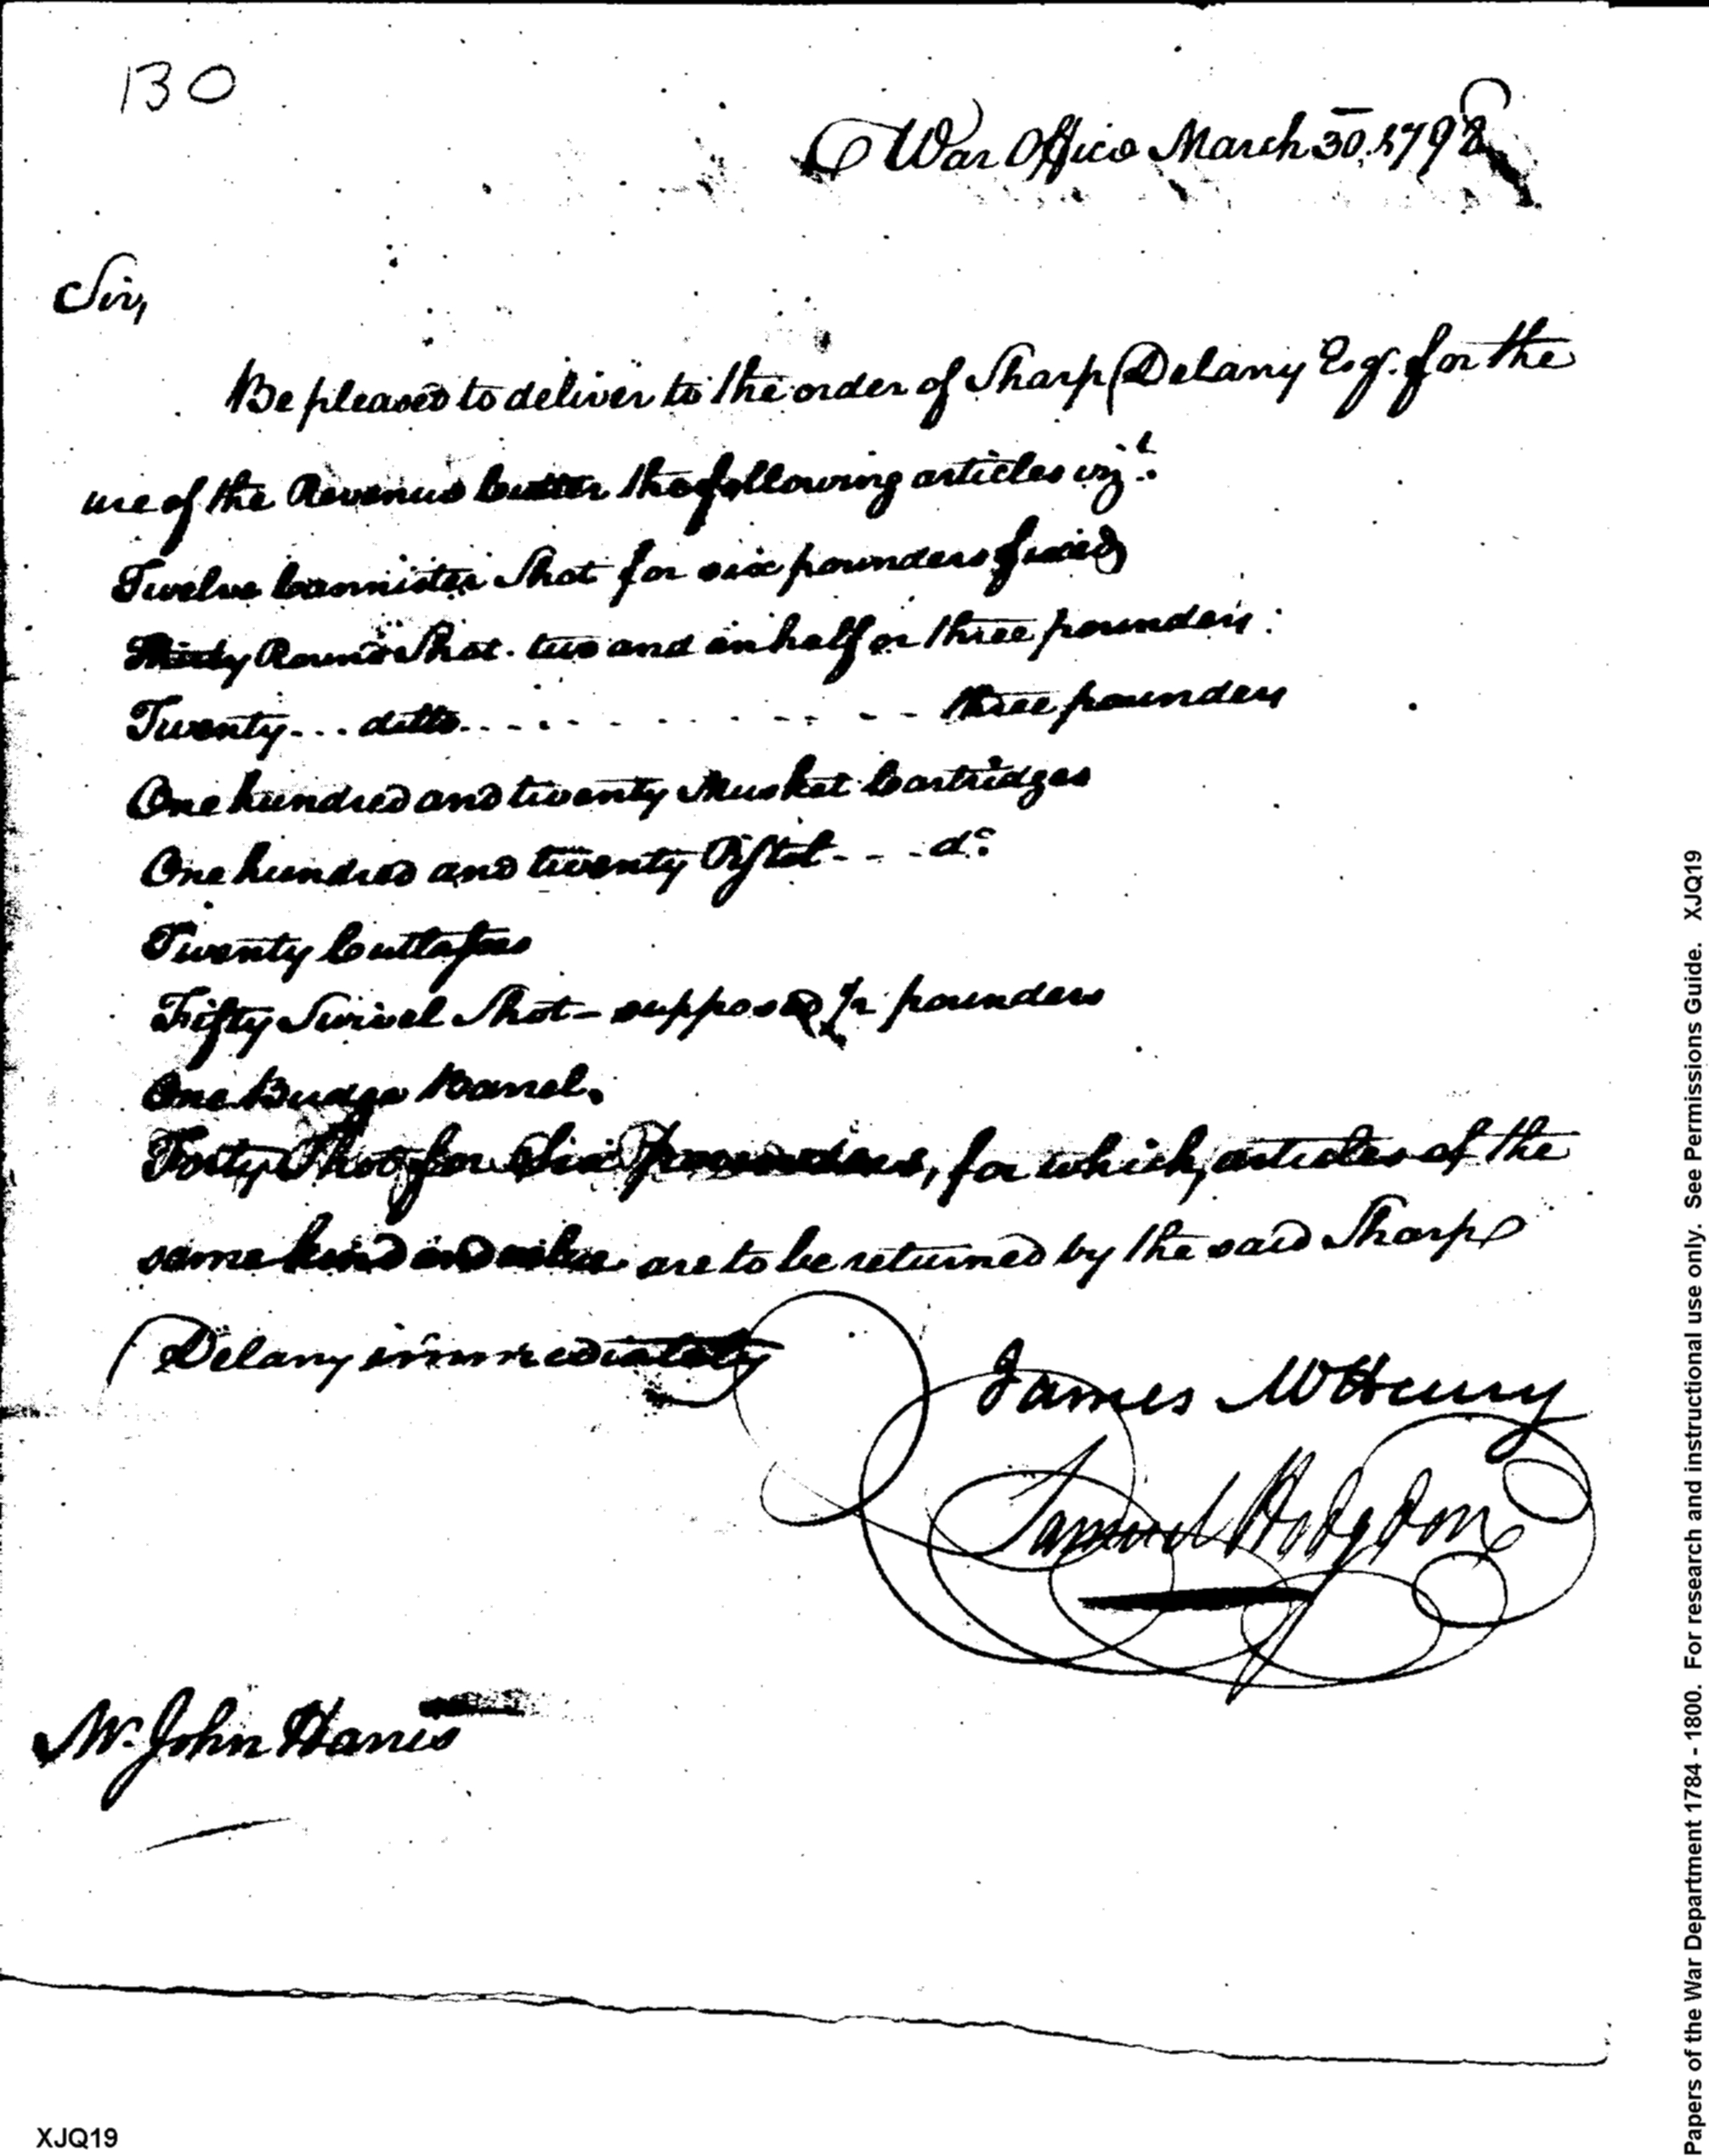 130
War Office March 30. 1798
Sir,
Be pleased to deliver to the order of Sharp Delany Esqr. for the
use of the Revenue Cutter the following articles vizt.
Twelve Cannister Shot for six pounders fixed
Thirty Round Shot. two and an half or three pounders:
Twenty... ditto............ three pounders
One hundred and twenty Musket Cartridges
One hundred and twenty Pistol - - - do.
Twenty Cutlasses
Fifty Swivel Shot - supposed pounders
One Budge Barrel.
Forty Shot for Six Pounders, for which, articles of the
same kind and value are to be returned by the said Sharp
Delany immediately
James McHenry
Samuel Hodgdon
Mr. John Harris
XJQ19
Papers of the War Department 1784 - 1800. For research and instructional use only. See Permissions Guide. XJQ19